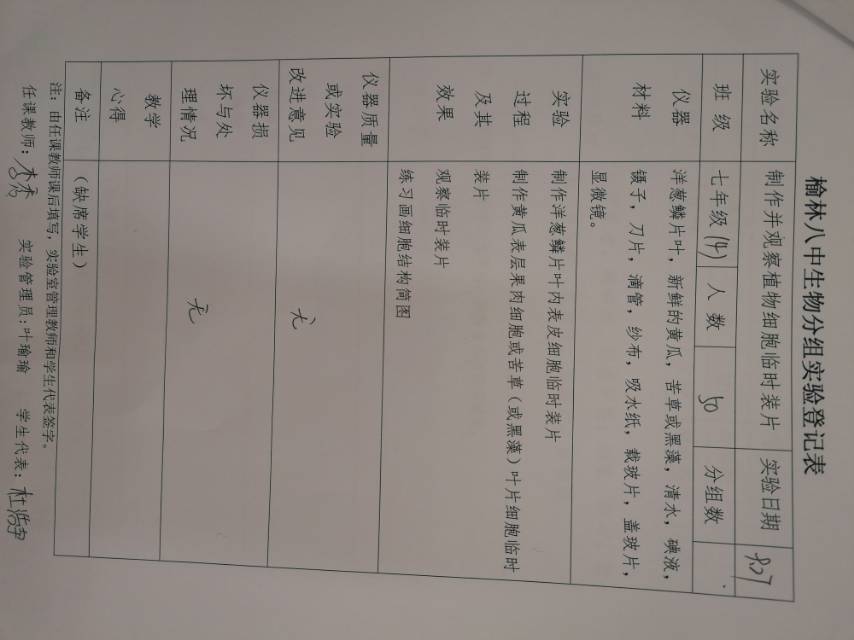 榆林八中生物分组实验登记表
实验名称 制作并观察植物细胞临时装片 实验日期
班 级 七年级(14) 人 数 50 分组数
仪器
材料
洋葱鳞片叶，新鲜的黄瓜，苦草或黑藻，清水，碘液，
镊子，刀片，滴管，纱布，吸水纸，载玻片，盖玻片，
显微镜。
实验
过程
及其
效果
制作洋葱鳞片叶内表皮细胞临时装片
制作黄瓜表层果肉细胞或苦草（或黑藻）叶片细胞临时
装片
观察临时装片
练习画细胞结构简图
仪器质量
或实验
改进意见
无
仪器损
坏与处
理情况
无
教学
心得
备注 （缺席学生）
注：由任课教师课后填写，实验室管理教师和学生代表签字。
任课教师： 实验管理员:叶瑜瑜 学生代表：杜浩宇